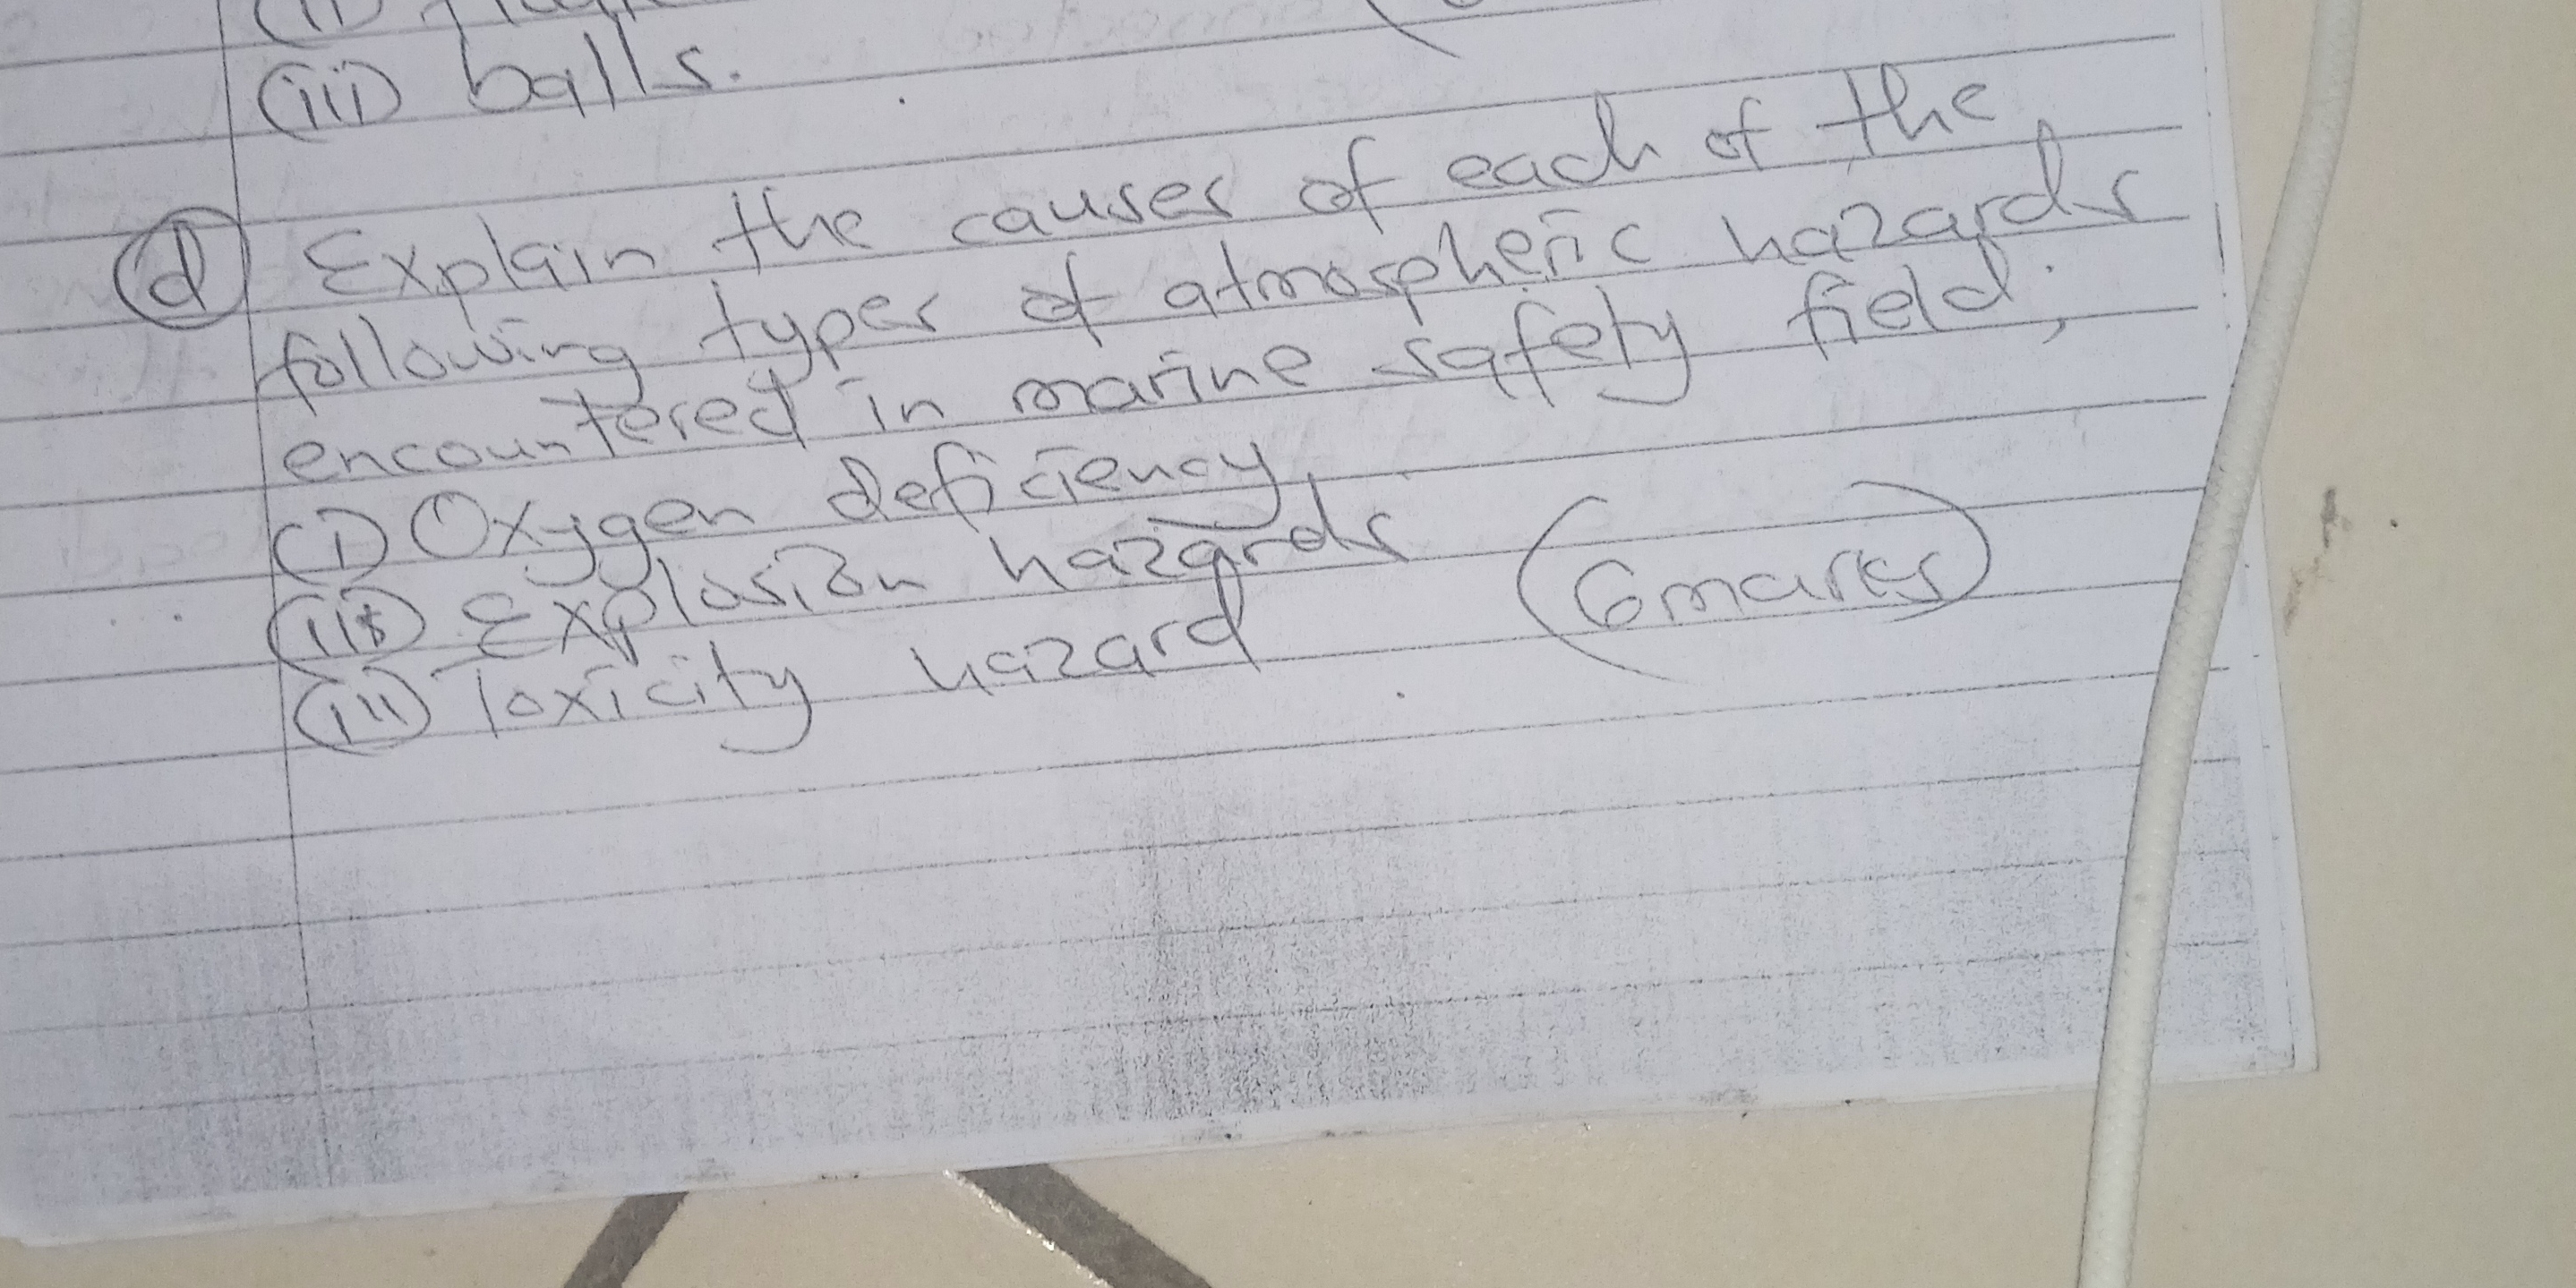 (iii) balls.
(d) Explain the causes of each of the
following types of atmospheric hazards
encountered in marine safety field;
(i) Oxygen deficiency
(ii) Explosion hazards
(iii) Toxicity hazard (6marks)